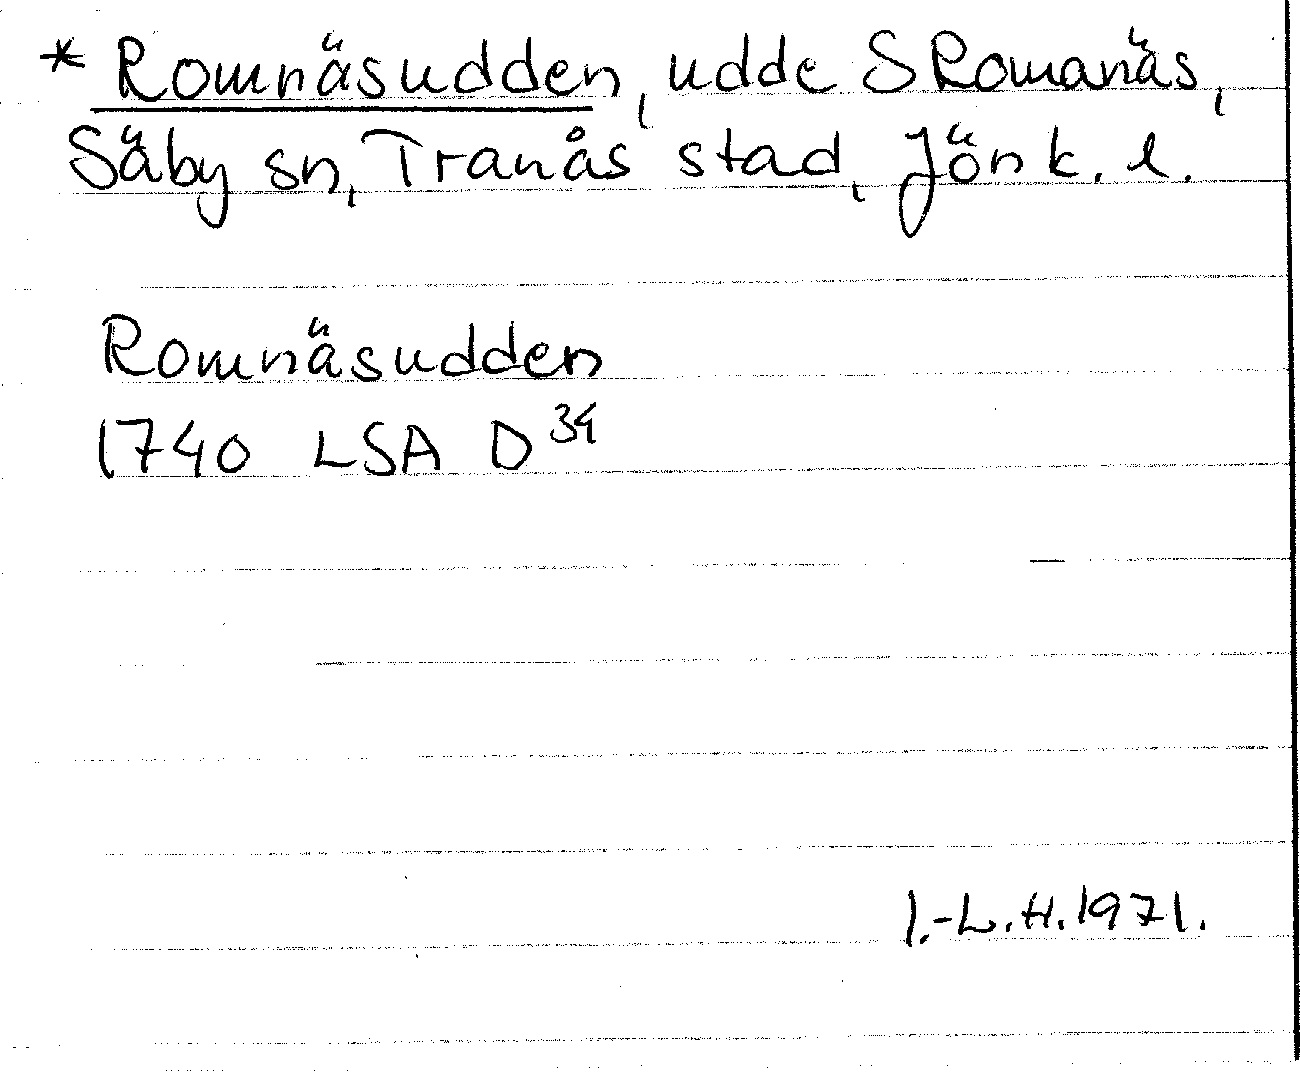 * Romnäsudden, udde S Romanäs,
Säby sn, Tranås stad, Jönk. l.
Romnäsudden
1740 LSA D³⁴
I.-L.H.1971.